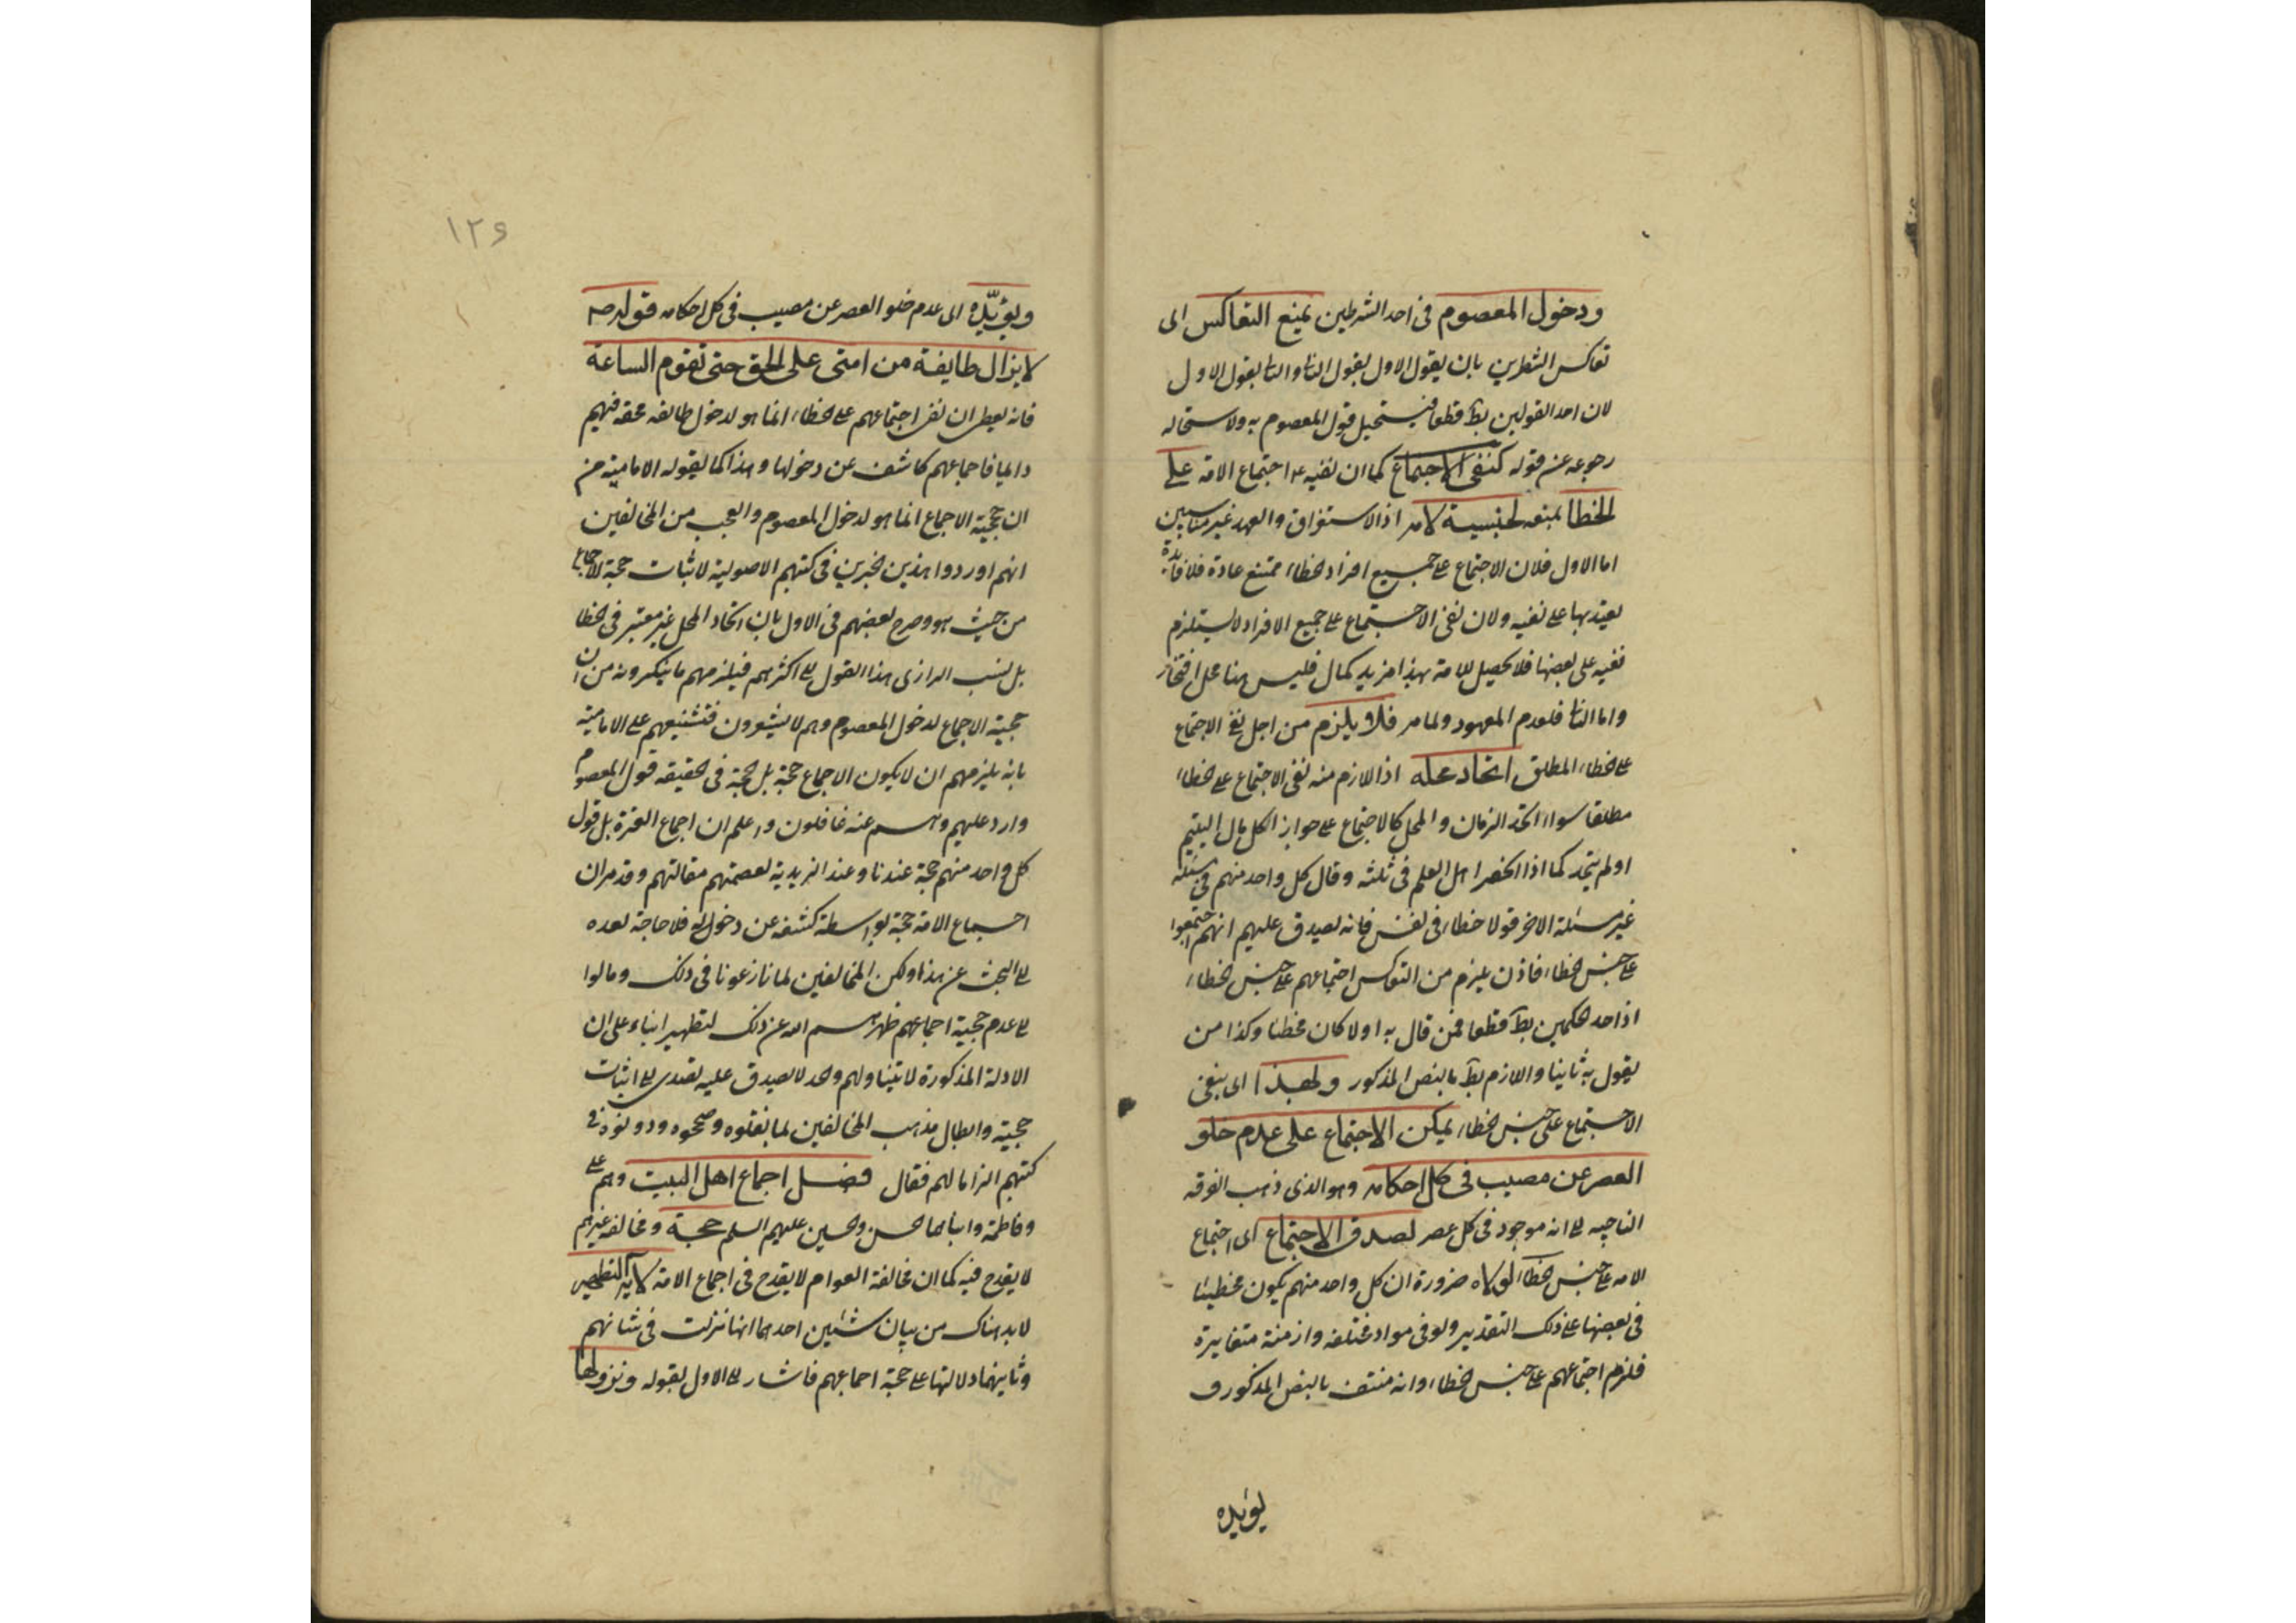 ودخول المعصوم فى احد الشرطين يمنع التعاكس اى
تعاكس الشطرين بان يقول الاول بقول الثا والثا بقول الاول
لان احد القولين بط قطعا فيستحيل قول المعصوم به ولاستحاله
رجوعه عن قوله كنفى الاجتماع كما ان نفيه ع اجتماع الامة على
الخطا يمنعه لجنسية لامر اذ الاستغراق والعهد غير مناسبين
اما الاول فلان الاجتماع على جميع افراد الخطاء ممتنع عادة فلا فائدة
يعتد بها على نفيه ولان نفى الاجتماع على جميع الافراد لا يستلزم
نفيه على بعضها فلا يحصل للامة بهذا مزيد كمال فليس هنا محل افتخار
واما الثا فلعدم المعهود ولما مر فلا يلزم من اجل نفى الاجتماع
على الخطاء المطلق اتحاد محله اذ اللازم منه نفى الاجتماع على الخطاء
مطلقا سواء اتحد الزمان والمحل كالاجتماع على جواز اكل مال اليتيم
او لم يتحد كما اذا انحصر اهل العلم فى ثلثه وقال كل واحد منهم فى مسئلة
غير مسئلة الاخر قولا خطاء فى نفس فانه يصدق عليهم انهم اجتمعوا
على جنس الخطاء فاذن يلزم من التعاكس اجتماعهم على جنس الخطاء
اذ احد الحكمين بط قطعا فمن قال به اولا كان مخطئا وكذا من
يقول به ثانيا واللازم بط بالنص المذكور ولهذا اى بنفى
الاجتماع على جنس الخطاء يمكن الاجتماع على عدم خلو
العصر عن مصيب فى كل احكامه وهو الذى ذهب الفرقه
الناجيه الى انه موجود فى كل عصر لصدق الاجتماع اى اجتماع
الامه على جنس الخطا لولاه ضرورة ان كل واحد منهم يكون مخطيئا
فى بعضها على ذلك التقدير ولو فى مواد مختلفه وازمنة متغايرة
فلزم اجتماعهم على جنس الخطاء وانه منتف بالنص المذكور و
يؤيده
١٢٦
ويؤيّده اى عدم خلو العصر عن مصيب فى كل احكامه قوله ص
لا يزال طايفة من امتى على الحق حتى تقوم الساعة
فانه يعطى ان نفى اجتماعهم على الخطاء انما هو لدخول طائفه محقه فيهم
دائما فاجماعهم كاشف عن دخولها وهذا كما يقوله الامامية من
ان حجية الاجماع انما هو لدخول المعصوم والعجب من المخالفين
انهم اوردوا هذين الخبرين فى كتبهم الاصولية لاثبات حجية الاجماع
من حيث هو وصرح بعضهم فى الاول بان اتحاد المحل غير معتبر فى الخطا
بل نسب الرازى هذا القول الى اكثرهم فيلزمهم ما ينكرونه من ان
حجية الاجماع لدخول المعصوم وهم لا يشعرون فتشنيعهم على الامامية
بانه يلزمهم ان لا يكون الاجماع حجة بل الحجة فى الحقيقه قول المعصوم
وارد عليهم وهم عنه غافلون واعلم ان اجماع العترة بل قول
كل واحد منهم حجة عندنا وعند الزيدية لعصمتهم مقالتهم وقد مر ان
اجماع الامة حجة بواسطة كشفه عن دخول فلا حاجة بعده
الى البحث عن هذا ولكن المخالفين لما نازعونا فى ذلك ومالوا
الى عدم حجية اجماعهم طهرهم الله عن ذلك تطهيرا بناء على ان
الادلة المذكورة لا تتناولهم وحد لا يصدق عليه تصدى الى اثبات
حجيته وابطال مذهب المخالفين لما نقلوه وصححوه ودونوه فى
كتبهم الزاما لهم فقال فصل اجماع اهل البيت وهم على
وفاطمة وابناهما الحسن والحسين عليهم السلم حجة ومخالفه غيرهم
لا يقدح فيه كما ان مخالفة العوام لا يقدح فى اجماع الامة لاية التطهير
لابد هناك من بيان شيئين احدهما انها نزلت فى شانهم
وثانيهما دلالتها على حجية اجماعهم فاشار الى الاول بقوله ونزولها